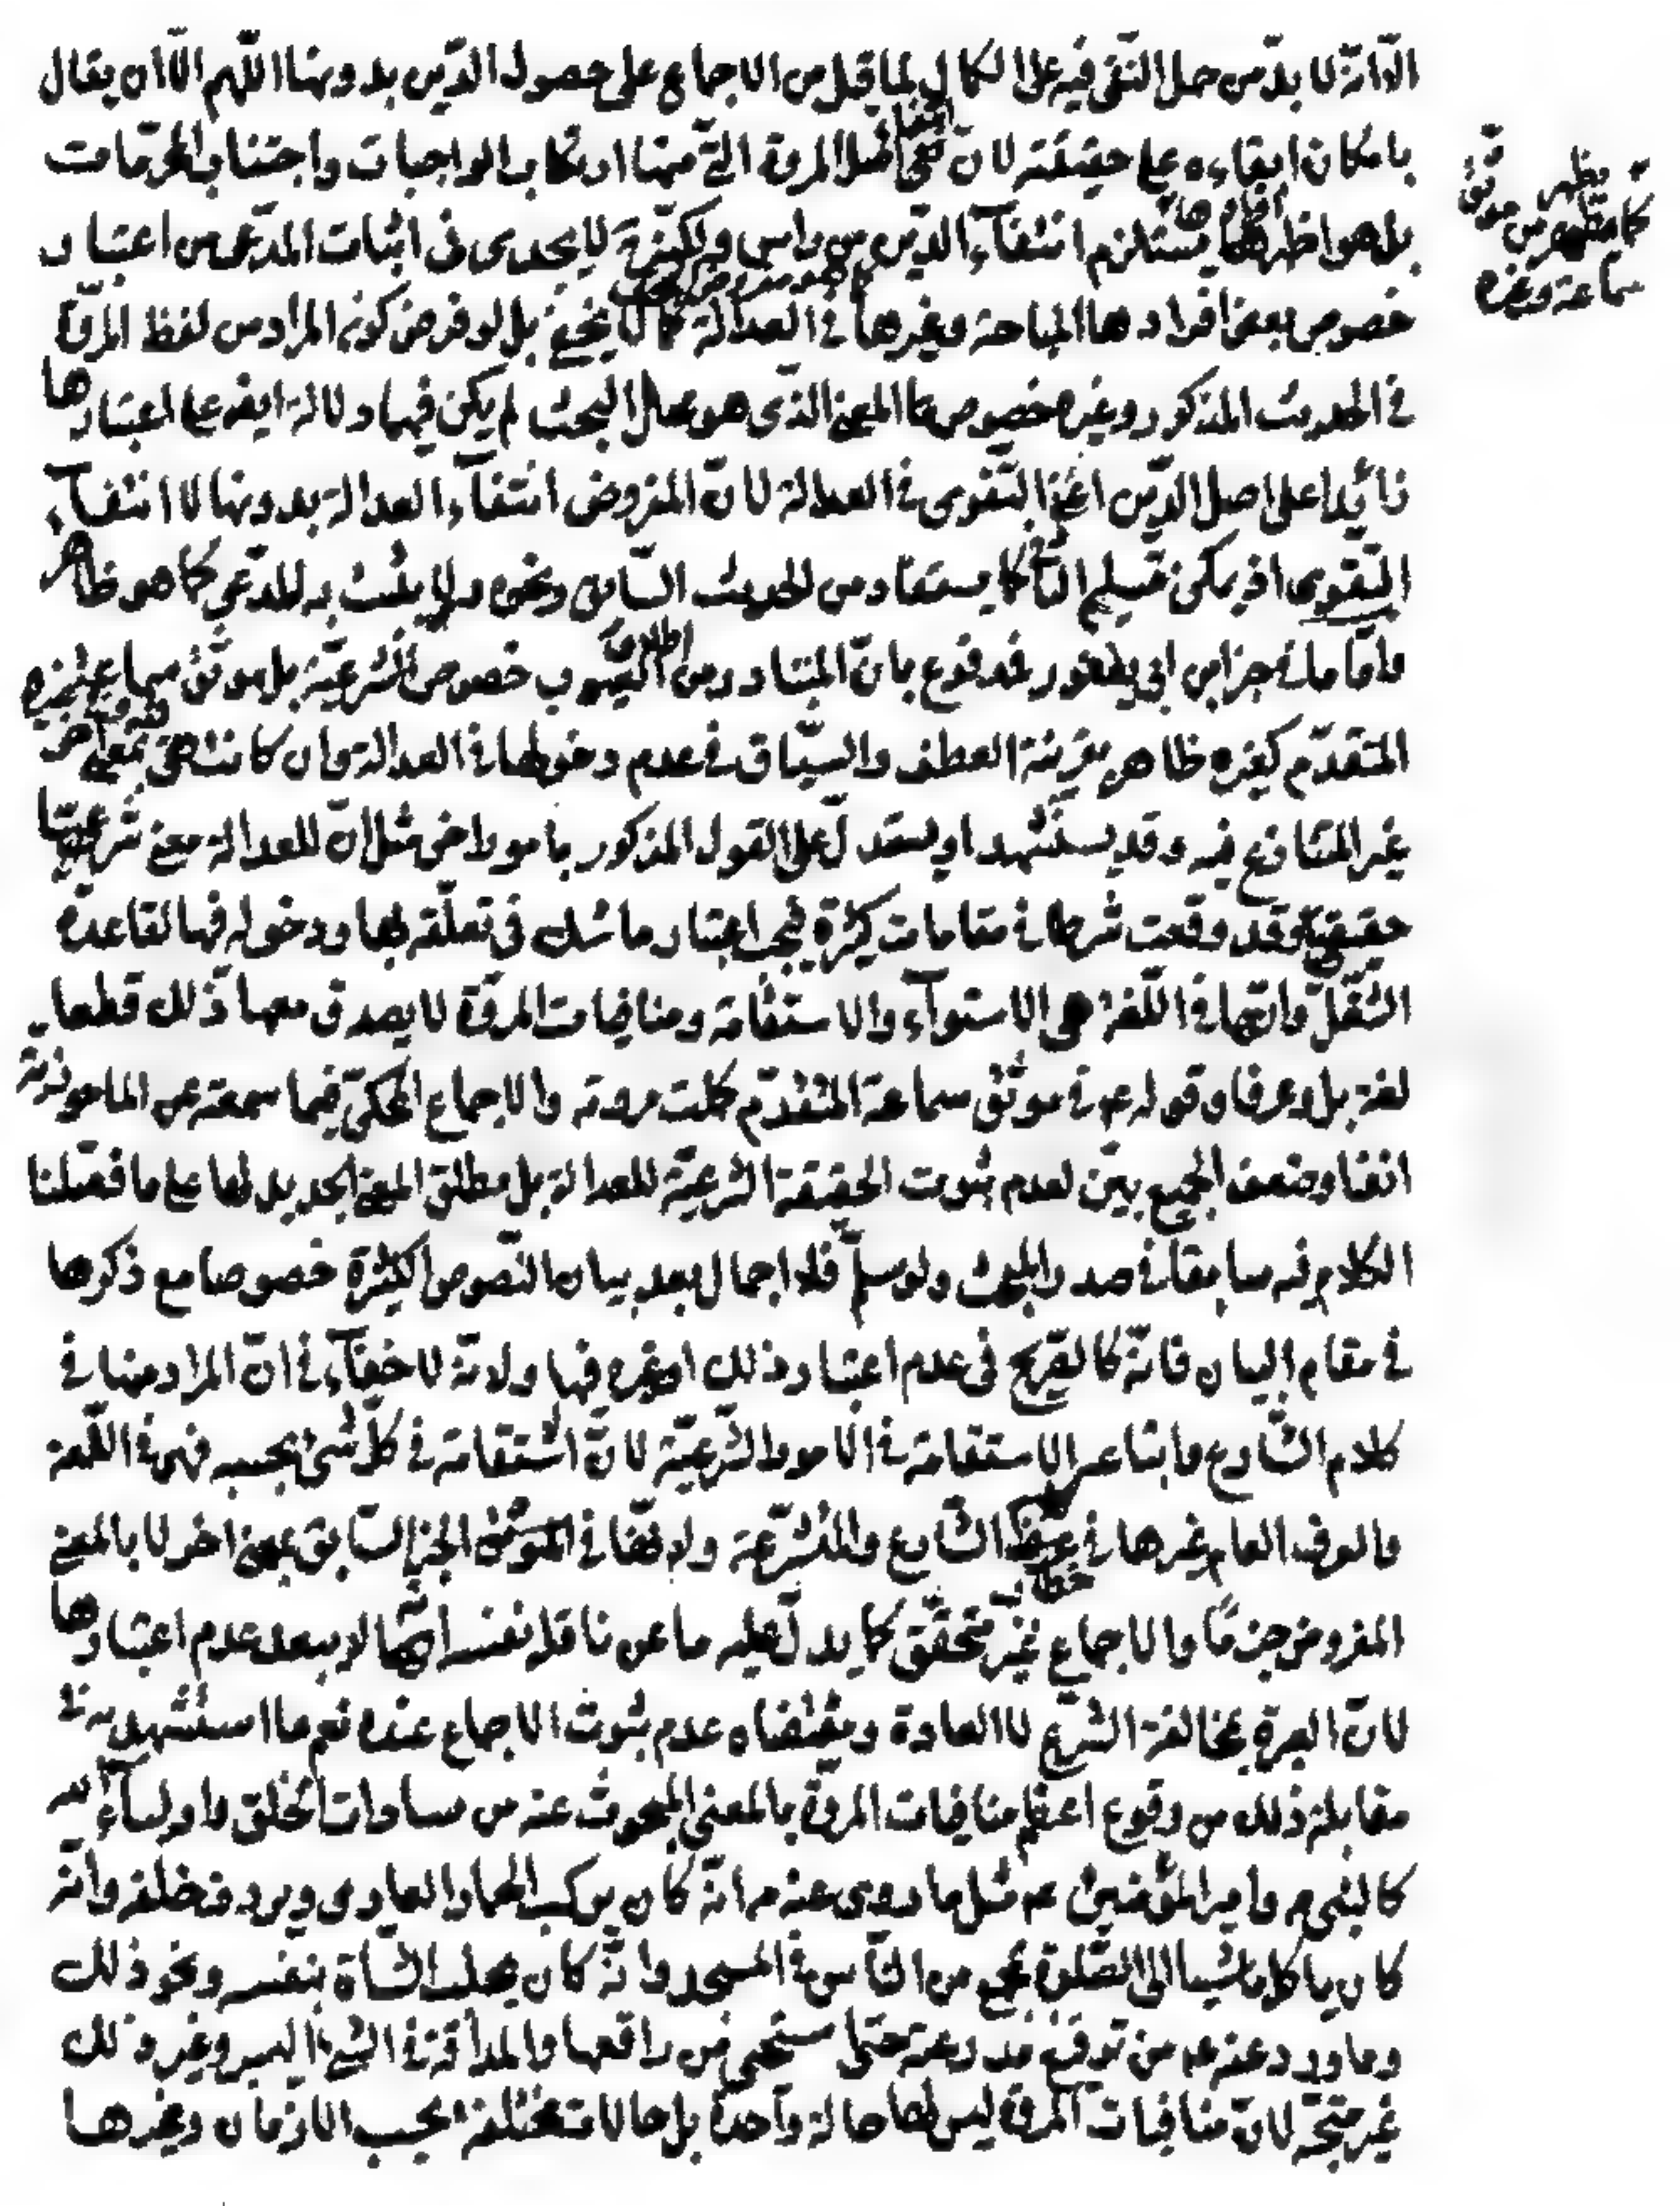 الّا انّه لا بدّ من حمل النّفى فيه على الكمال لما قيل من الاجماع على حصول الدّين بدونها اللّهم الّا ان يقال
بامكان ابقاءه على حقيقته لانّ انتفاء اصل المروة الّتى منها ارتكاب الواجبات واجتناب المحرّمات
بل هو اظهر افرادها يستلزم انتفاء الدّين من راس ولكنّه لا يجدى فى اثبات المدّعى من اعتبار
خصوص بعض افرادها المباحة وغيرها فى العدالة كما لا يخفى بل لو فرض كونه المراد من لفظ المروّة
فى الحديث المذكور وغيره خصوص المعنى الذّى هو محلّ البحث لم يكن فيهما دلالة ايضا على اعتبارها
زائدا على اصل الدّين اعنى التّقوى فى العدالة لانّ المفروض انتفاء العدالة بدونها لا انتفاء
التّقوى اذ يمكن تسليم الثّانى كما يستفاد من الحديث السّابق ونحوه ولا يثبت به المدّعى كما هو ظاهر
وامّا ما فى خبر ابن ابى يعفور فمدفوع بانّ المتبادر من اطلاق العيوب خصوص الشّرعيّة بل موثّق سماعة كخبره
المتقدّم كغيره ظاهر بقرينة العطف والسّياق فى عدم دخولها فى العدالة وان كانت هى بمعنى اخر
غير المتنازع فيه وقد يستشهد او يستدلّ على القول المذكور بامور اخر مثل انّ للعدالة معنى شرعيّا
حقيقيّا وقد وقعت شرطا فى مقامات كثيرة فيجب اعتبار ما شك فى تعلّقه بها ودخوله فيها لقاعدة
الشّغل وانّها فى اللّغة هى الاستواء والاستقامة ومنافيات المروّة لا يصدق معها ذلك قطعا
لغة بل وعرفا وقوله ع فى موثّق سماعة المتقدّم كملت مروته والاجماع المحكىّ فيما سمعته عن الماحوزيّة
انفا وضعف الجميع بيّن لعدم ثبوت الحقيقة الشّرعيّة للعدالة بل مطلق المعنى الجديد لها على ما فصّلنا
الكلام فيه سابقا فى صدر المبحث ولو سلّم فلا اجمال بعد بيان النّصوص الكثيرة خصوصا مع ذكرها
فى مقام البيان فانّه كالصّريح فى عدم اعتبار ذلك او غيره فيها ولانّه لا خفاء فى انّ المراد منها فى
كلام الشّارع واتباعه الاستقامة فى الامور الشّرعيّة لانّ استقامة فى كلّ شئ بحسبه فهى فى اللّغة
والعرف العام غيرها فى خطاب الشّارع والمتشرّعة ولانّها فى الموثّق الخبر السّابق بمعنى اخر لا بالمعنى
المفروض جزمًا والاجماع غير متحقّق كما يدلّ عليه ما عن ناقله نفسه انّه لا يبعد عدم اعتبارها
لانّ العبرة بمخالفة الشّرع لا العادة ومقتضاه عدم ثبوت الاجماع عنده نعم ما استشهد به فى
مقابلة ذلك من وقوع اعظم منافيات المروّة بالمعنى المبحوث عنه من سادات الخلق واولياء الله
كالنّبى ص وامير المؤمنين ع مثل ما روى عنه ص انّه كان يركب الحمار العارى ويردف خلفه وانّه
كان ياكل ماشيا الى الصّلوة بمجمع من النّاس فى المسجد وانّه كان يحلب الشّاة بنفسه ونحو ذلك
وما ورد عنه ع من ترقيع مدرعته حتى استحيى من راقعها والمداقّة فى الشئ اليسير وغير ذلك
غير متّجه لانّ منافيات المروّة ليس لها حالة واحدة بل حالات مختلفة بحسب الازمان وغيرها
كما يظهر من موثّق
سماعة وغيره